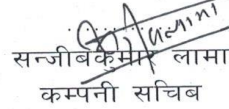 सन्जीबकुमार लामा
कम्पनी सचिब